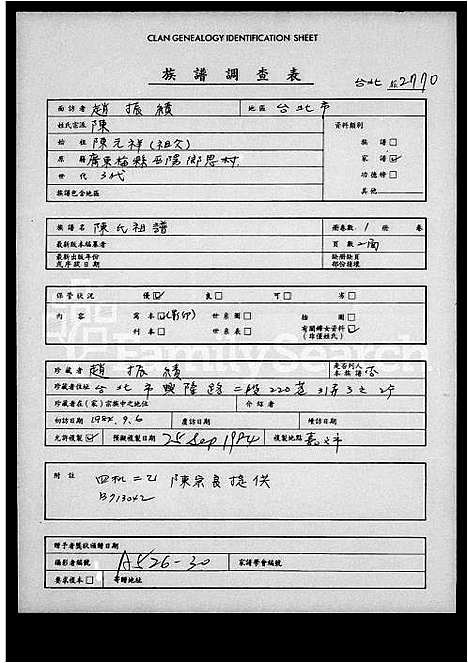 CLAN GENEALOGY IDENTIFICATION SHEET
族譜調查表
台北 2770
面訪者 趙振績 地區 台北市
姓氏宗派 陳 資料類別
始祖 陳元祥(祖父) 族譜
原籍 廣東梅縣 鄉思村 家譜 ✓
世代 3代 功德榜
族譜包含地區 其他
族譜名 陳氏祖譜 冊卷數 1 冊 卷
最新版本編纂者 頁數 2面
最新出版年份或序跋日期 缺冊缺頁部份損壞
保管狀況 優 ✓ 良 可 劣
內容 寫本 ✓(影印) 世系圖 插圖
刊本 世系表 有關婦女資料(非僅姓氏) ✓
珍藏者 趙振績 是否列入本族譜 否
珍藏者住址 台北市興隆路二段220巷31弄3之2號
珍藏者在(家)宗族中之地位 介紹者
初訪日期 1984.9.6 複訪日期 續訪日期
允許複製 ✓ 預擬複製日期 25 Sep 1984 複製地點
附註 四机二乙 陳宗良提供
B713042
贈予者獎狀頒贈日期
攝影者編號 A526-30 家譜學會編號
要求複本 寄贈地址
FamilySearch